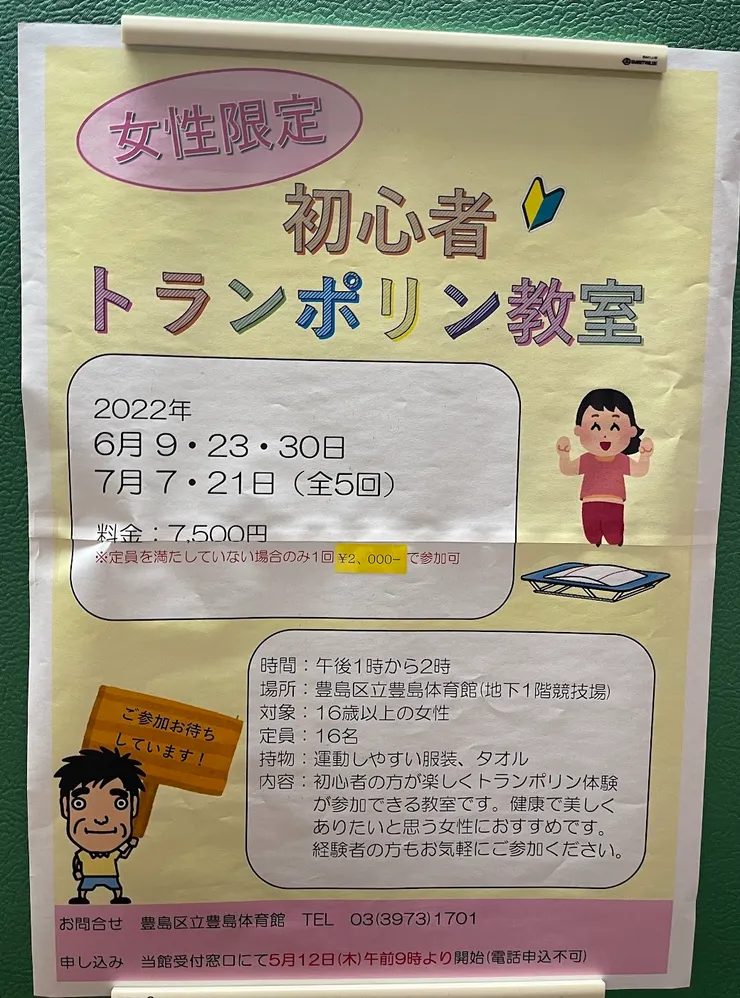 女性限定
初心者
トランポリン教室
2022年
6月 9・23・30日
7月 7・21日（全5回）
料金：7,500円
※定員を満たしていない場合のみ1回 ¥2、000− で参加可
時間：午後1時から2時
場所：豊島区立豊島体育館(地下1階競技場)
対象：16歳以上の女性
定員：16名
持物：運動しやすい服装、タオル
内容：初心者の方が楽しくトランポリン体験
が参加できる教室です。健康で美しく
ありたいと思う女性におすすめです。
経験者の方もお気軽にご参加ください。
ご参加お待ち
しています！
お問合せ　豊島区立豊島体育館　TEL　03(3973)1701
申し込み　当館受付窓口にて5月12日(木)午前9時より開始(電話申込不可)